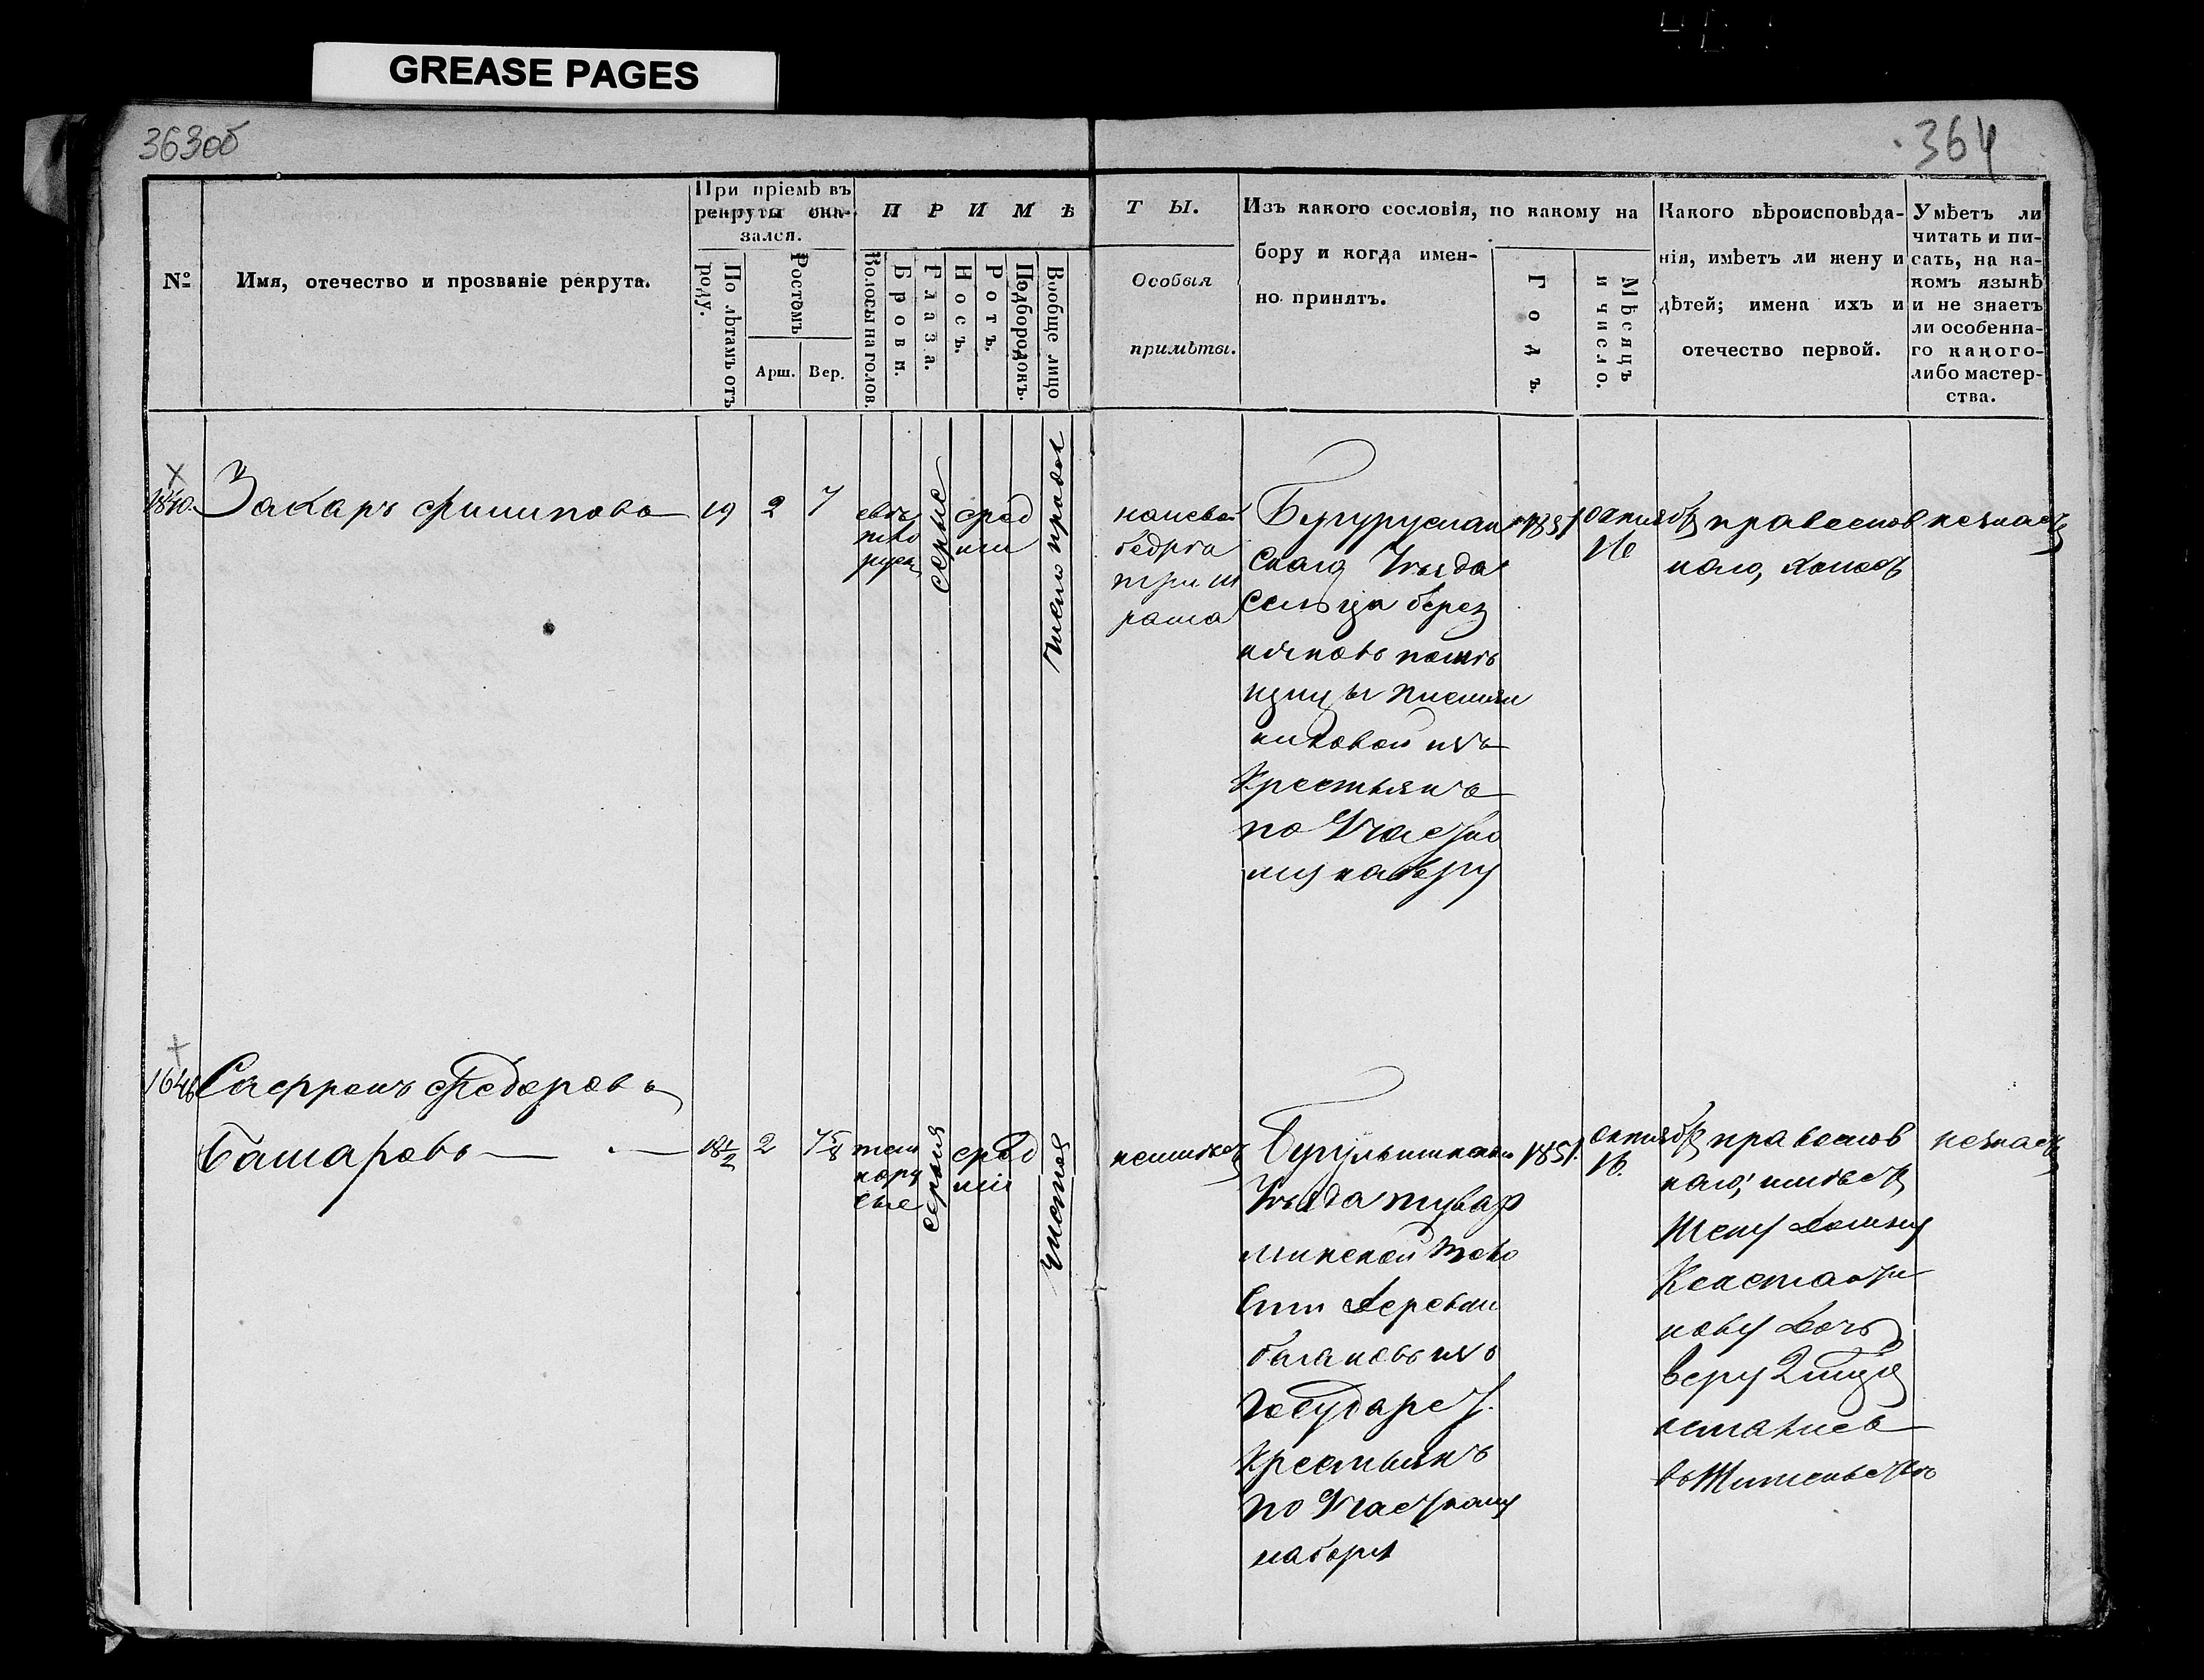 GREASE PAGES
363об
364
№
Имя, отечество и прозваніе рекрута.
При пріемѣ въ
рекруты ока-
зался.
По лѣтамъ отъ
роду.
Ростомъ
Арш.
Вер.
ПРИМѢ
Волосы на голов.
Брови.
Глаза.
Носъ.
Ротъ.
Подбородокъ.
Вообще лицо
ТЫ.
Особыя
примѣты.
Изъ какого сословія, по какому на
бору и когда имен-
но принятъ.
Годъ.
Мѣсяцъ
и число.
Какого вѣроисповѣда-
нія, имѣетъ ли жену и
дѣтей; имена ихъ и
отечество первой.
Умѣетъ ли
читать и пи-
сать, на ка-
комъ языкѣ
и не знаетъ
ли особенна-
го какого-
либо мастер-
ства.
Захаръ Филиповъ
19
2
7
свѣт
ло
русы
серые
сред
ніи
на левой
бедрѣ
три ш
рама
Бугуруслан
скаго Уѣзда
Сельца берез
няковъ помѣ
щицы
изъ
Крестьянъ
по Участко
му набору
1851
октября
16
православ
наго, холостъ
незнаетъ
1646
Сафронъ Федоровъ
Башаровъ
18½
2
7⅝
тем
нору
сые
серыя
сред
ніи
чистое
неимѣетъ
Бугульминскаго
Уѣзда
волости деревни
изъ
Государст.
Крестьянъ
по Участковому
набору
1851.
октября
16.
православ
наго, имѣетъ
жену Домну
Константи
нову дочь
веру
оставлен
въ жительстве
незнаетъ